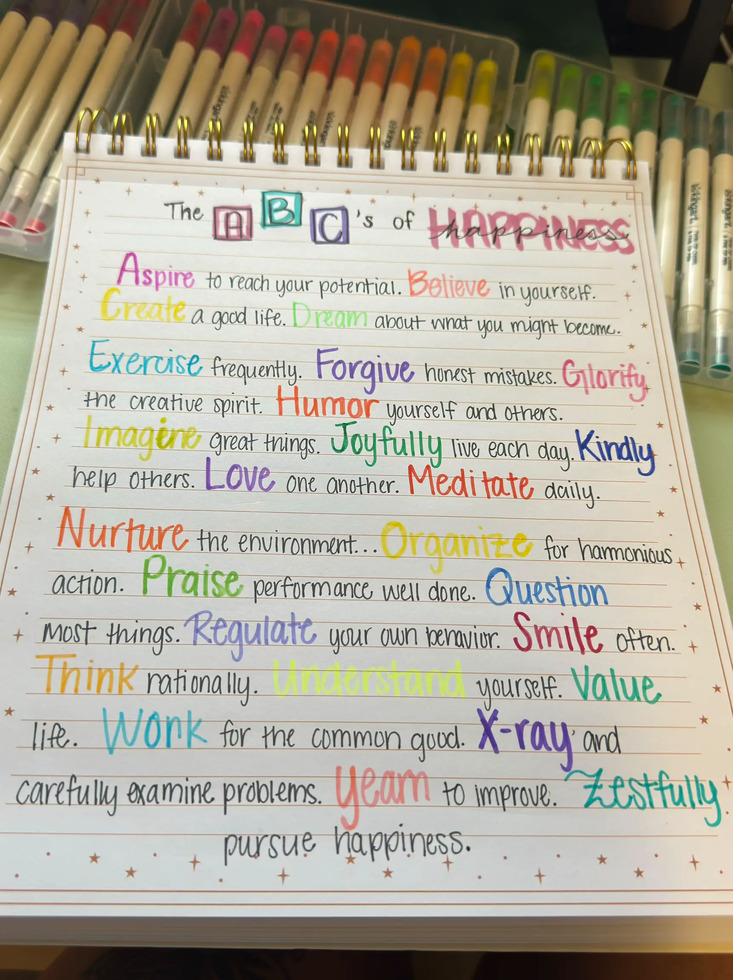 The ABC's of HAPPINESS happiness
Aspire to reach your potential. Believe in yourself.
Create a good life. Dream about what you might become.
Exercise frequently. Forgive honest mistakes. Glorify
the creative spirit. Humor yourself and others.
Imagine great things. Joyfully live each day. Kindly
help others. Love one another. Meditate daily.
Nurture the environment... Organize for harmonious
action. Praise performance well done. Question
most things. Regulate your own behavior. Smile often.
Think rationally. Understand yourself. Value
life. Work for the common good. X-ray and
carefully examine problems. Yearn to improve. Zestfully
pursue happiness.